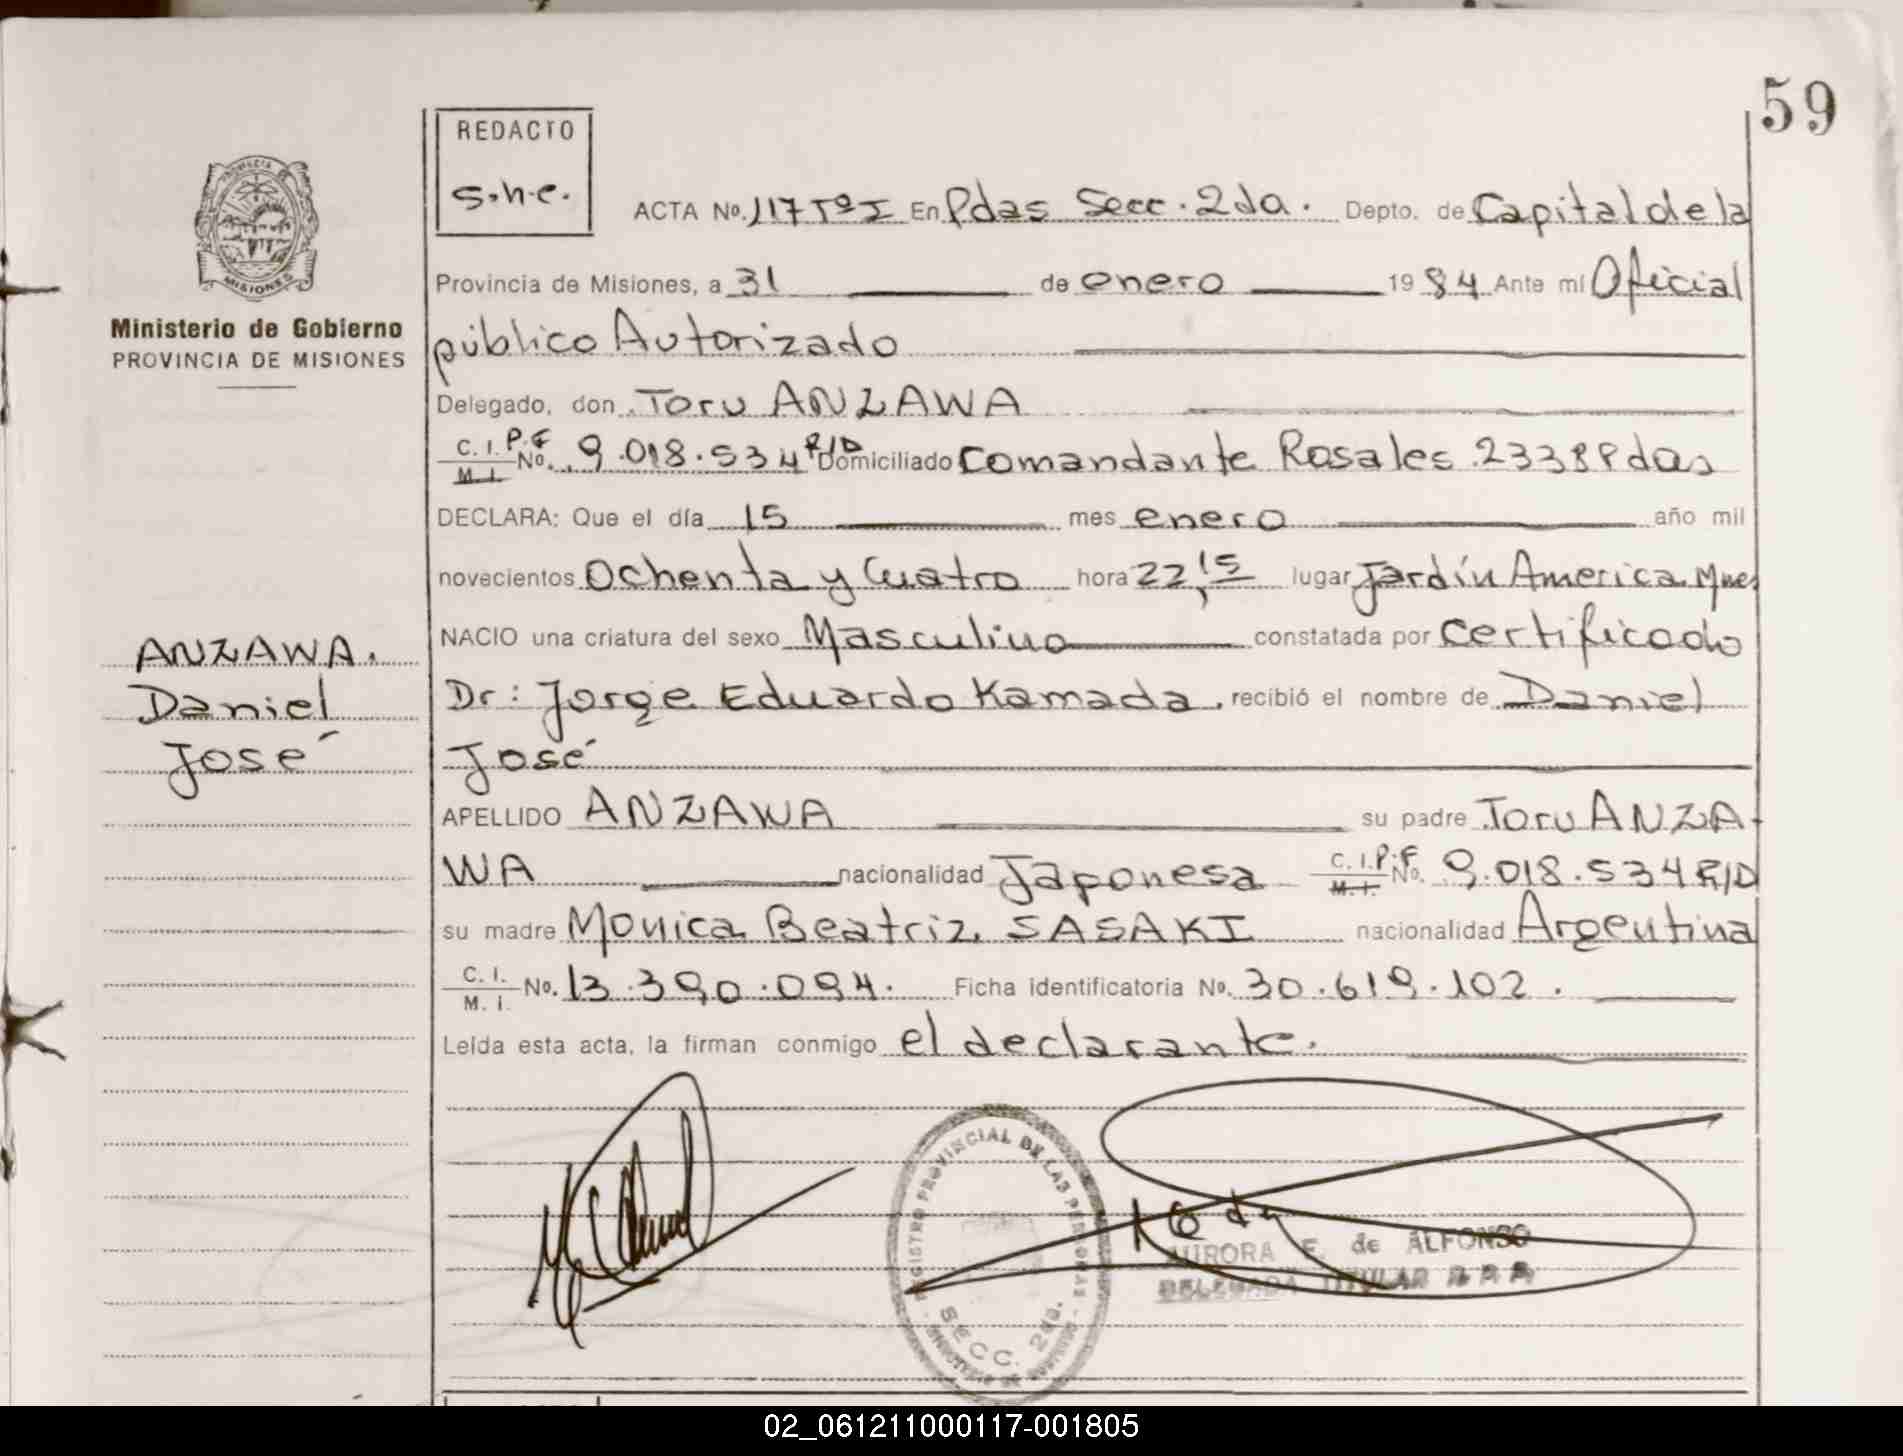 59
REDACTO
s.h.e.
PROVINCIA DE
MISIONES
Ministerio de Gobierno
PROVINCIA DE MISIONES
ACTA No. 117 Tº I En Pdas Secc. 2da. Depto. de Capital de la
Provincia de Misiones, a 31 de enero 1984 Ante mí Oficial
público Autorizado
Delegado, don Toru ANZAWA
C. I. P.F M. I. No. 9.018.534 R/D Domiciliado Comandante Rosales 2338 Pdas
DECLARA: Que el día 15 mes enero año mil
novecientos Ochenta y Cuatro hora 22,15 lugar Jardín America Mnes
NACIO una criatura del sexo Masculino constatada por Certificado
Dr: Jorge Eduardo Kamada, recibió el nombre de Daniel
José
APELLIDO ANZAWA su padre Toru ANZA-
WA nacionalidad Japonesa C. I. P.F M. I. No. 9.018.534 R/D
su madre Monica Beatriz SASAKI nacionalidad Argentina
C. I. M. I. No. 13.390.094. Ficha identificatoria No. 30.619.102.
Leída esta acta, la firman conmigo el declarante.
ANZAWA.
Daniel
José
REGISTRO PROVINCIAL DE LAS PERSONAS
SECC. 2da.
AURORA E. de ALFONSO
DELEGADA TITULAR
02_061211000117-001805